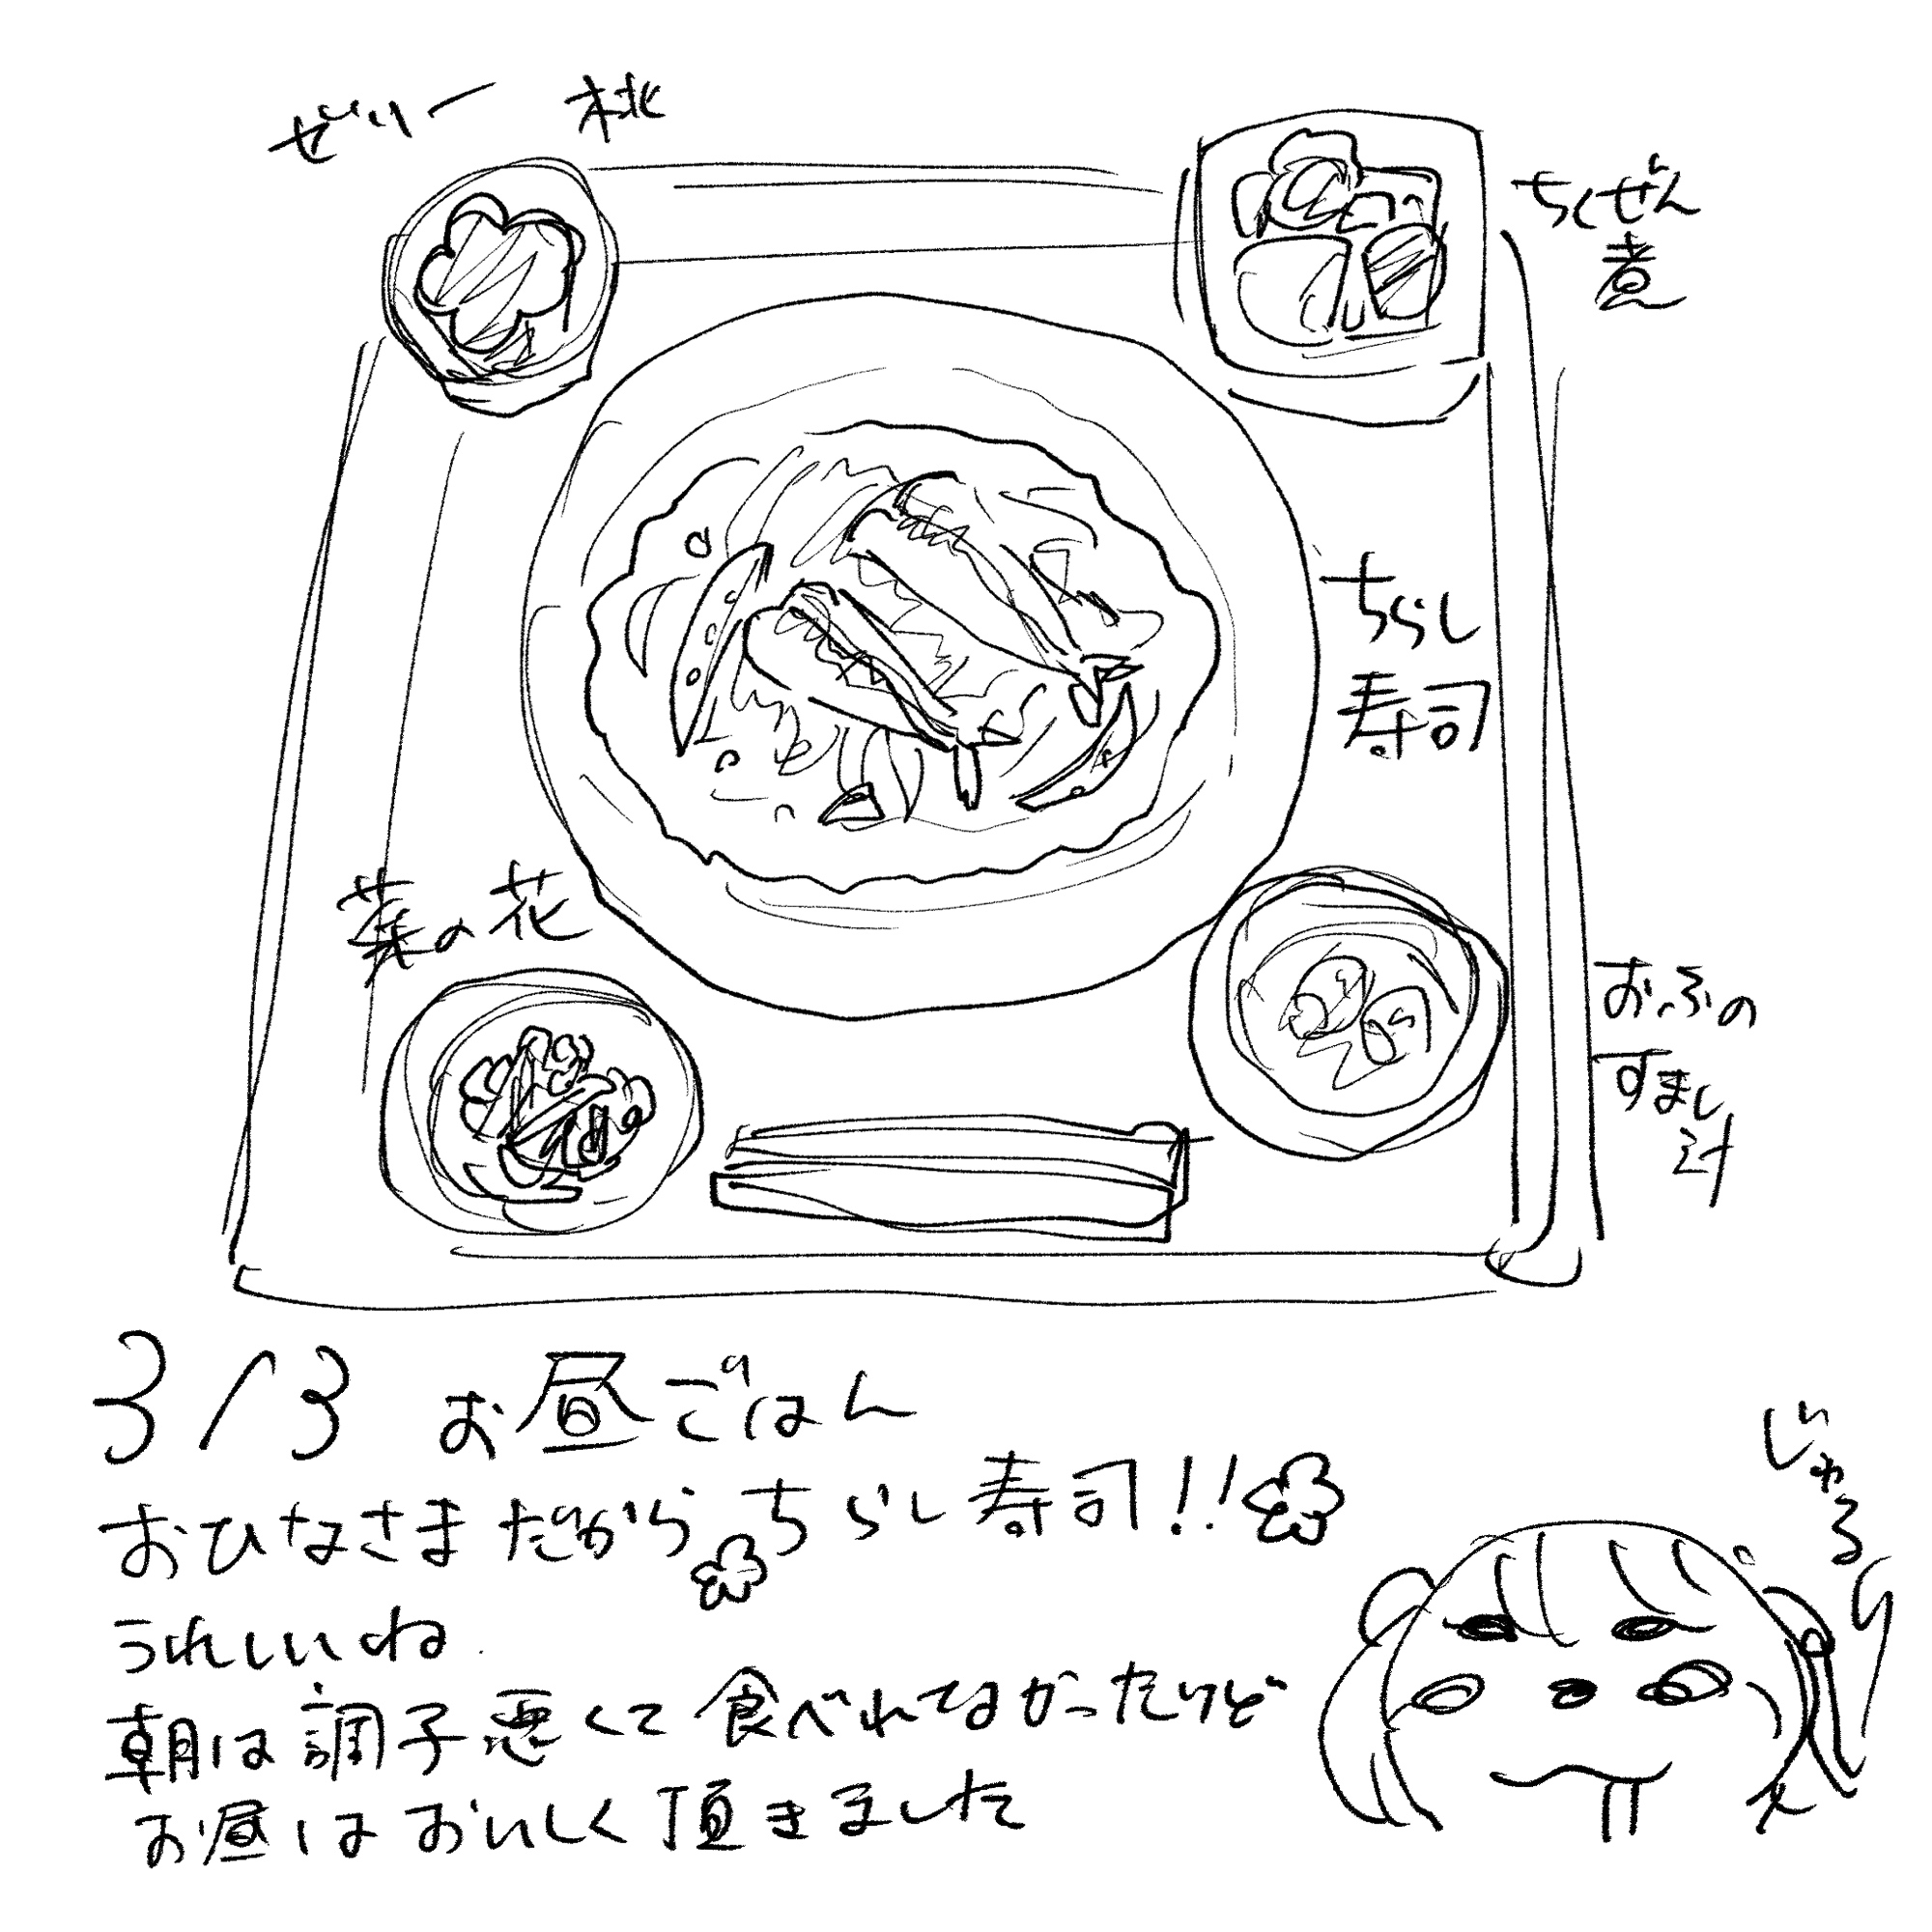 ゼリー 桃
ちくぜん
煮
ちらし
寿司
菜の花
おふの
すまし
汁
3/3 お昼ごはん
おひなさまだから ちらし寿司!!
うれしいね
朝は調子悪くて食べれてなかったけど
お昼はおいしく頂きました
じゅるり